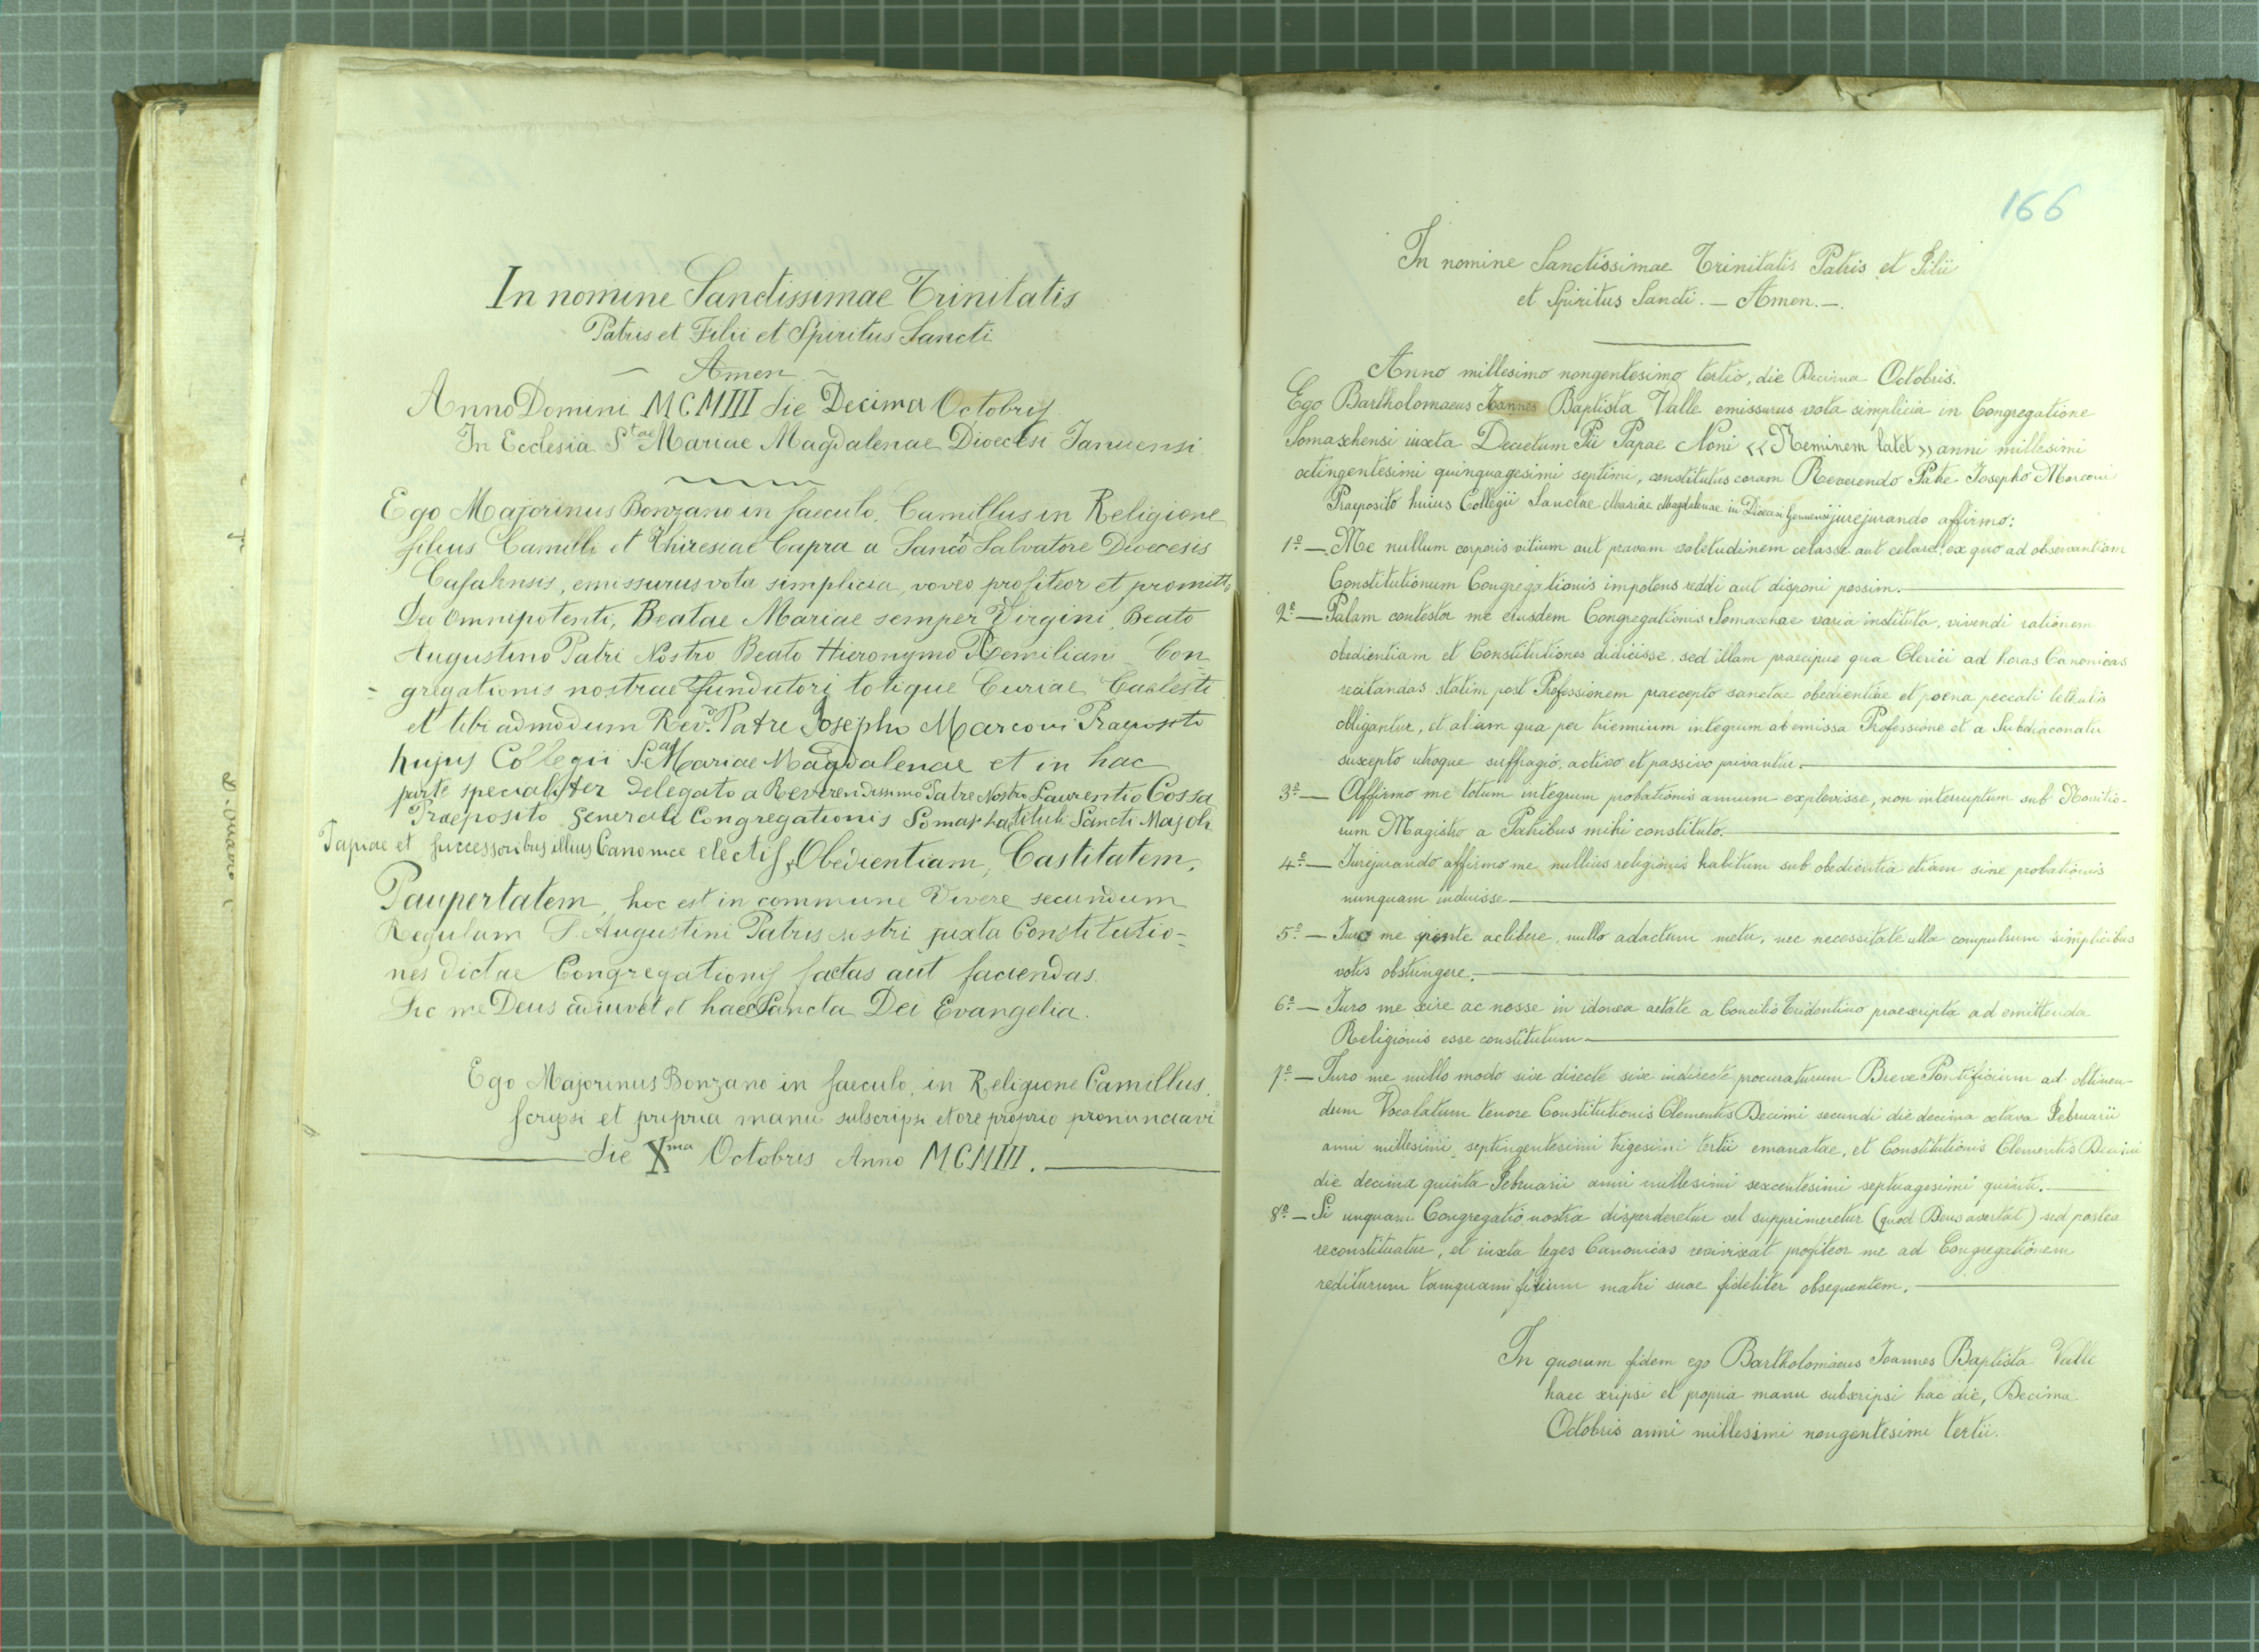 In nomine Sanctissimae Trinitatis
Patris et Filii et Spiritus Sancti
Amen
Anno Domini MCMIII die Decima Octobris
In Ecclesia Stae Mariae Magdalenae Dioecesi Januensi
Ego Majorinus Bonzano in saeculo, Camillus in Religione
filius Camilli et Thiresiae Capra a Sancto Salvatore Dioecesis
Casalensis, emissurus vota simplicia, voveo profiteor et promitto
Deo Omnipotenti, Beatae Mariae semper Virgini, Beato
Augustino Patri Nostro Beato Hieronymo Aemiliani Con
= gregationis nostrae fundatori totique Curiae Caelesti
et tibi admodum Revdo. Patre Josepho Marconi Praeposito
hujus Collegii Sae Mariae Magdalenae et in hac
parte specialiter delegato a Reverendissimo Patre Nostro Laurentio Cossa
Praeposito Generali Congregationis Somaschae tituli Sancti Majoli
Papiae et successoribus illius Canonice electis, Obedientiam, Castitatem,
Paupertatem, hoc est in commune vivere secundum
Regulam S. Augustini Patris nostri juxta Constitutio=
nes dictae Congregationis factas aut faciendas.
Sic me Deus adiuvet et haec Sancta Dei Evangelia.
Ego Majorinus Bonzano in saeculo, in Religione Camillus,
scripsi et propria manu subscripsi et ore proprio pronunciavi
die Xma Octobris Anno MCMIII.
166
In nomine Sanctissimae Trinitatis Patris et Filii
et Spiritus Sancti. — Amen. —
Anno millesimo nongentesimo tertio, die Decima Octobris.
Ego Bartholomaeus Joannes Baptista Valle emissurus vota simplicia in Congregatione
Somaschensi iuxta Decretum Pii Papae Noni << Neminem latet >> anni millesimi
octingentesimi quinquagesimi septimi, constitutus coram Reverendo Patre Josepho Marconi
Praeposito huius Collegii Sanctae Mariae Magdalenae in Dioecesi Genuensi jurejurando affirmo:
1º — Me nullum corporis vitium aut pravam valetudinem celasse aut celare, ex quo ad observantiam
Constitutionum Congregationis impotens reddi aut disponi possim.
2º — Palam contestor me eiusdem Congregationis Somaschae varia instituta, vivendi rationem
obedientiam et Constitutiones didicisse, sed illam praecipue qua Clerici ad horas Canonicas
recitandas statim post Professionem praecepto sanctae obedientiae et poena peccati lethalis
obligantur, et aliam qua per triennium integrum ab emissa Professione et a Subdiaconatu
suscepto utroque suffragio, activo et passivo privantur.
3º — Affirmo me totum integrum probationis annum explevisse, non interruptum sub Novitio-
rum Magistro a Patribus mihi constituto.
4º — Jurejurando affirmo me nullius religionis habitum sub obedientia etiam sine probationis
nunquam induisse
5º — Juro me sponte ac libere, nullo adactum metu, nec necessitate ulla compulsum simplicibus
votis obstringere.
6º — Juro me scire ac nosse in idonea aetate a Concilio Tridentino praescripta ad emittenda
Religionis esse constitutum
7º — Juro me nullo modo sive directe sive indirecte procuraturum Breve Pontificium ad obtinen-
dum Vocalatum tenore Constitutionis Clementis Decimi secundi die decima octava Februarii
anni millesimi septingentesimi trigesimi tertii emanatae, et Constitutionis Clementis Decimi
die decima quinta Februarii anni millesimi sexcentesimi septuagesimi quinti.
8º — Si unquam Congregatio nostra disperderetur vel supprimeretur (quod Deus avertat) sed postea
reconstituatur, et iuxta leges Canonicas reviviscat profiteor me ad Congregationem
rediturum tamquam filium matri suae fideliter obsequentem.
In quorum fidem ego Bartholomaeus Joannes Baptista Valle
haec scripsi et propria manu subscripsi hac die, Decima
Octobris anni millesimi nongentesimi tertii.